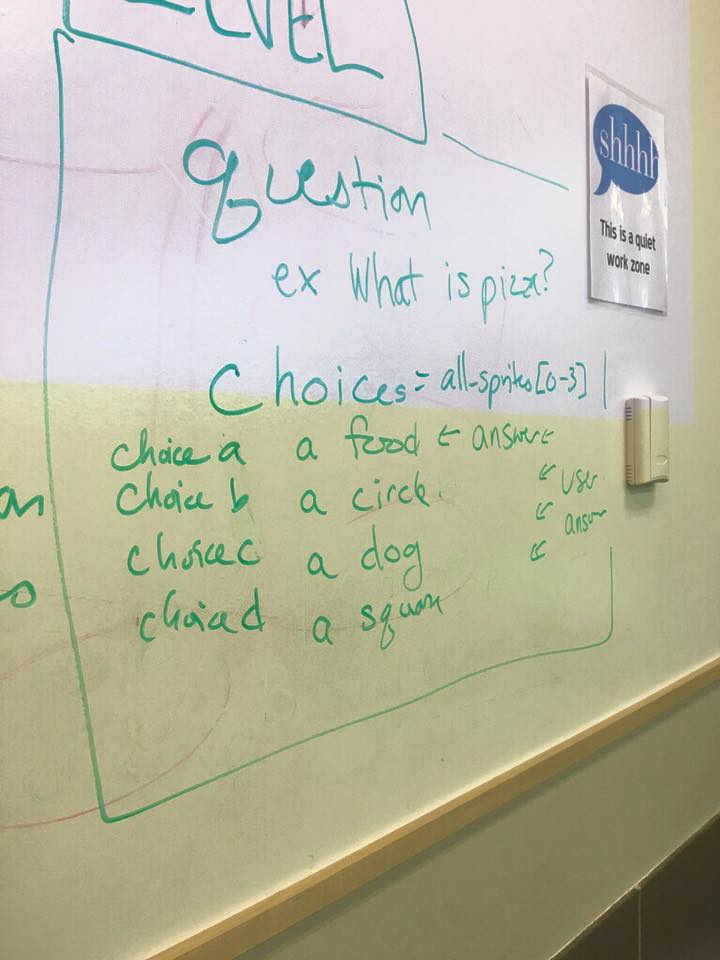 LEVEL
question
ex What is pizza?
Choices = all-sprites[0-3]
choice a a food ← answer ←
choice b a circle ← user
choice c a dog ← answer
choice d a square
shhhh
This is a quiet
work zone
an